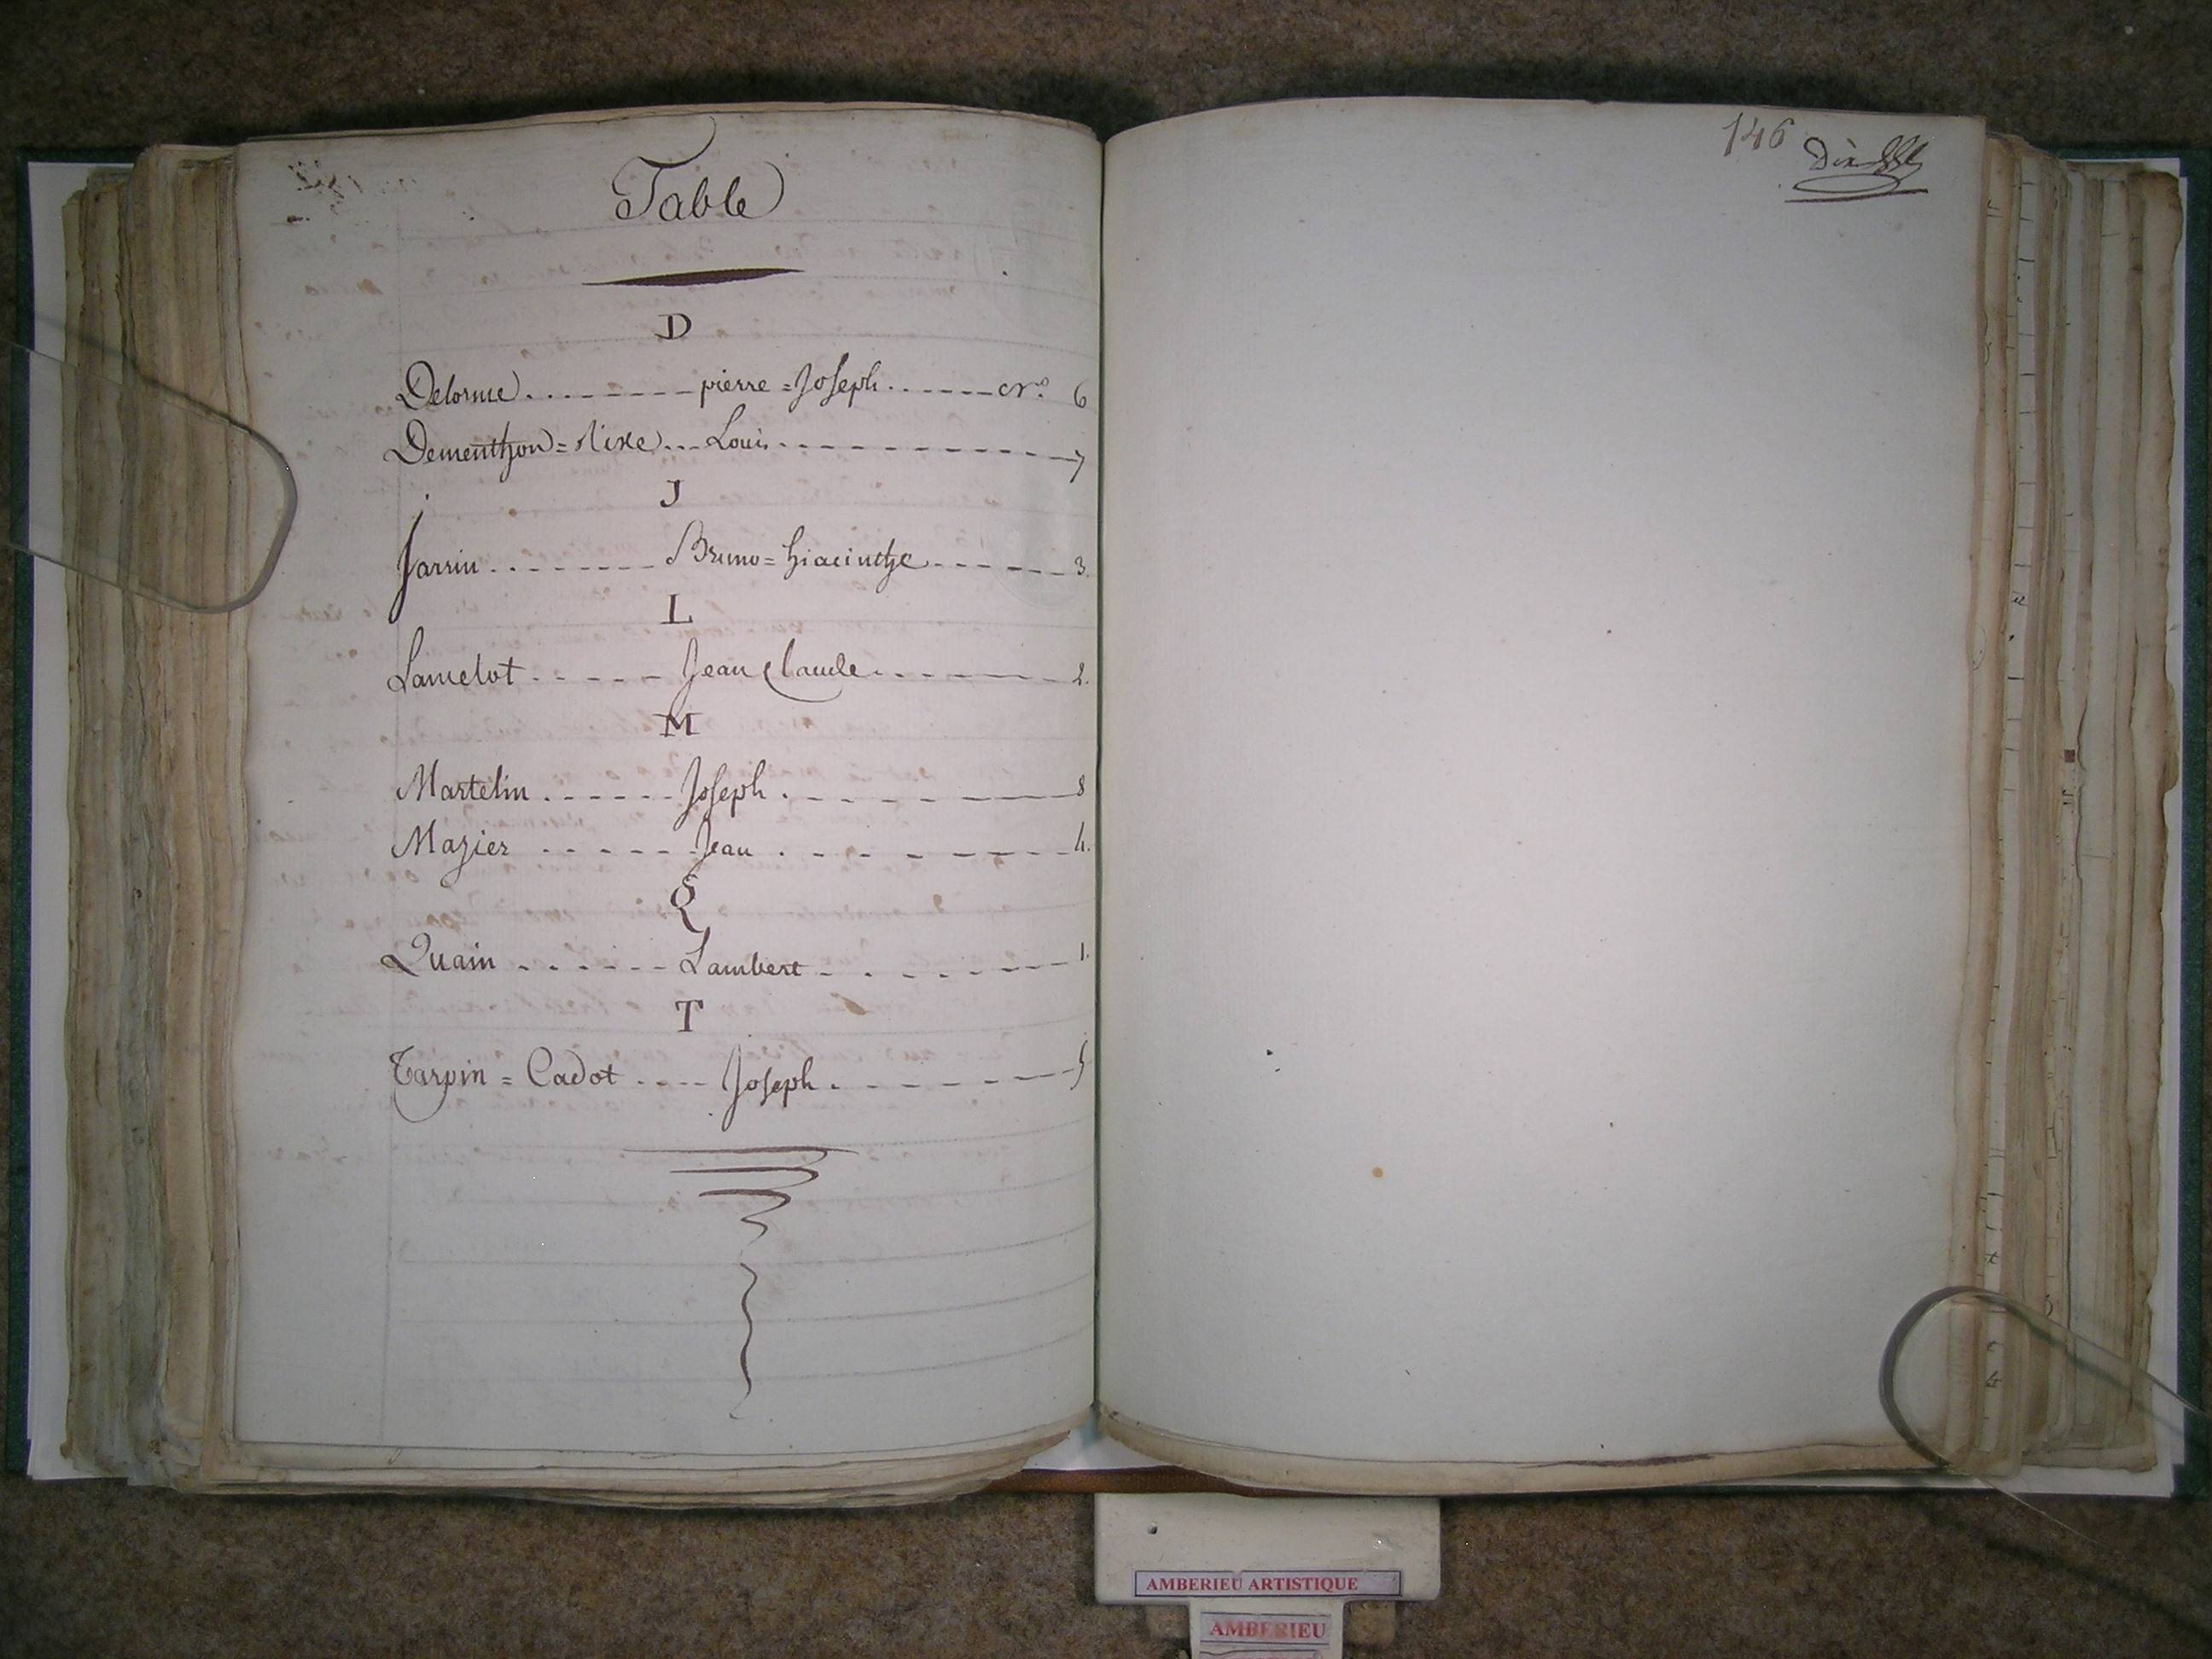 Table
D
Delorme ......... pierre = Joseph ...... N.º 6
Dementhon = Rixe ... Louis ......... 7
J
Jarrin ......... Bruno = hiacinthe ...... 3.
L
Lancelot ...... Jean Claude ...... 2.
M
Martelin ...... Joseph ...... 8
Mazier ...... Jean ...... 4.
Q
Quain ...... Lambert ...... 1.
T
Tarpin = Cadot .... Joseph ...... 5
146
AMBERIEU ARTISTIQUE
AMBERIEU